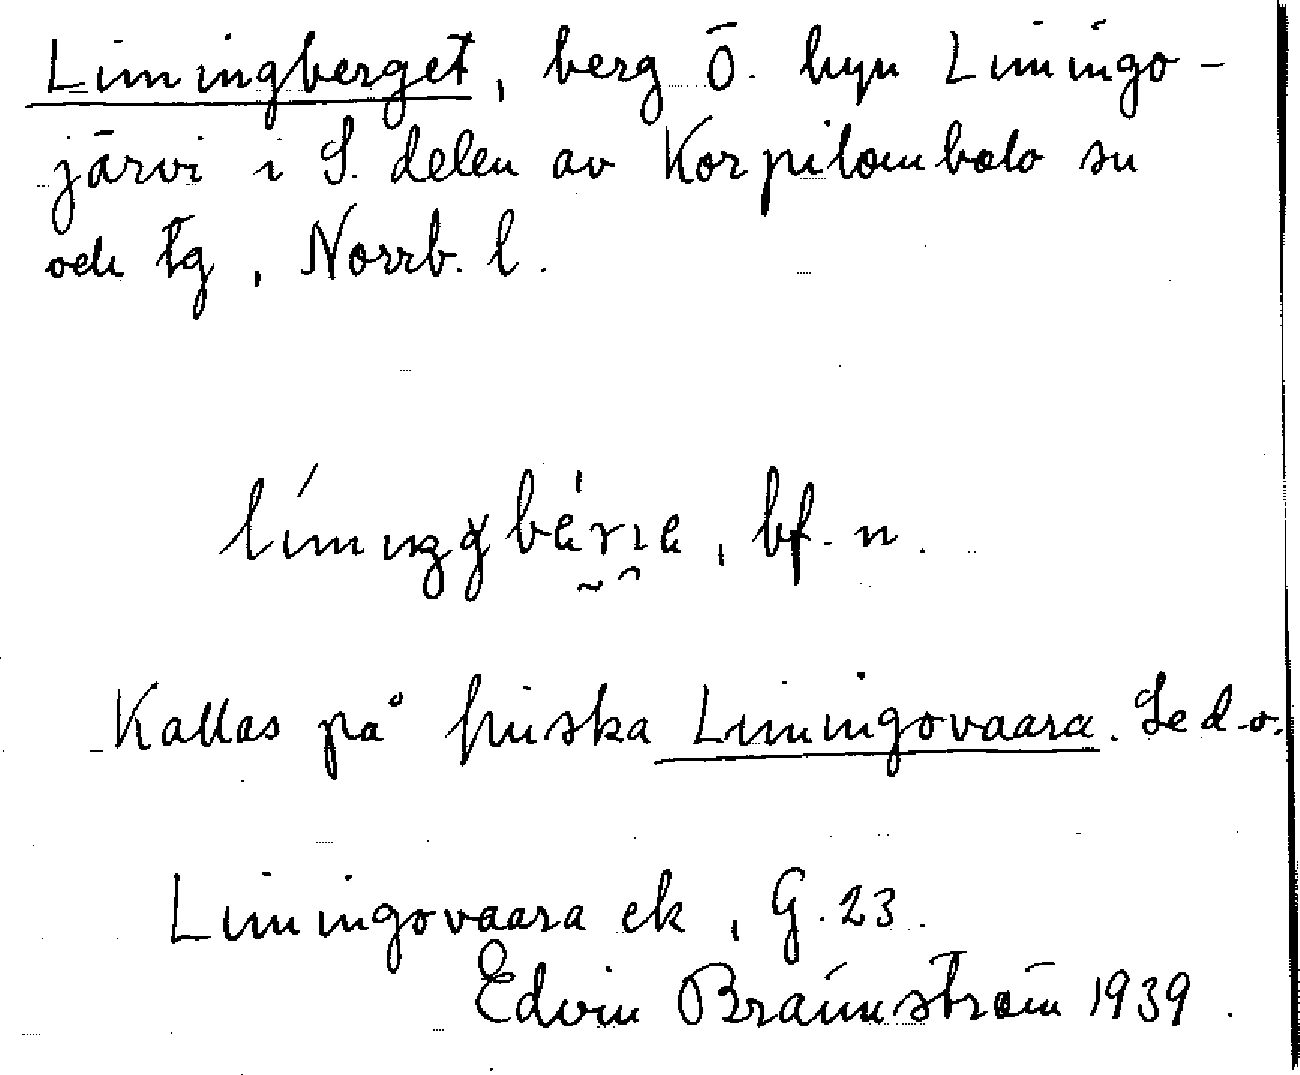 Limingberget, berg Ö. byn Limingo-
järvi i S. delen av Korpilombolo sn
och tg, Norrb. l.
bf. n.
Kallas på finska Limingovaara. Se d.o.
Limingovaara ek, G. 23.
Edvin Brännström 1939.